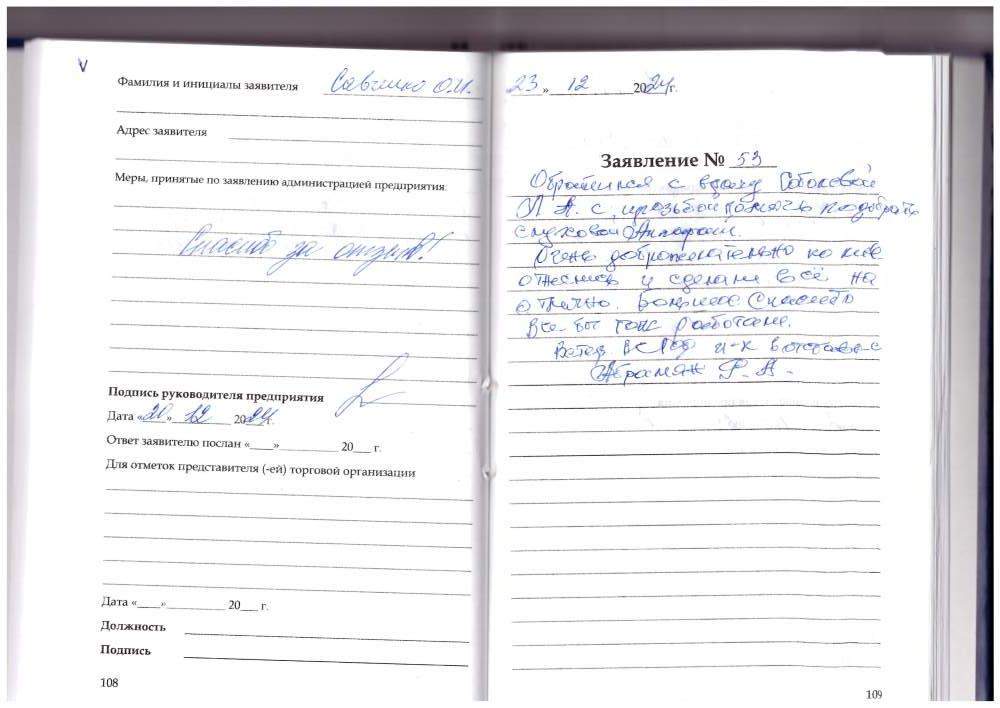 V
Фамилия и инициалы заявителя Савченко О.И.
Адрес заявителя
Меры, принятые по заявлению администрацией предприятия
Спасибо за отзыв!
Подпись руководителя предприятия
Дата «20» 12 2024г.
Ответ заявителю послан «___» ________ 20___ г.
Для отметок представителя (-ей) торговой организации
Дата «___» ________ 20___ г.
Должность
Подпись
108
23 » 12 2024г.
Заявление № 53
Обратился с врачу Соболевой
Л А. с прозьбой помочь подобрать
слуховой Аппарат.
Очень доброжелательно ко мне
отнеслись и сделали всё на
отлично. Большое Спасибо
Все бы так работали.
в отставке
Абрамян Г. А.
109